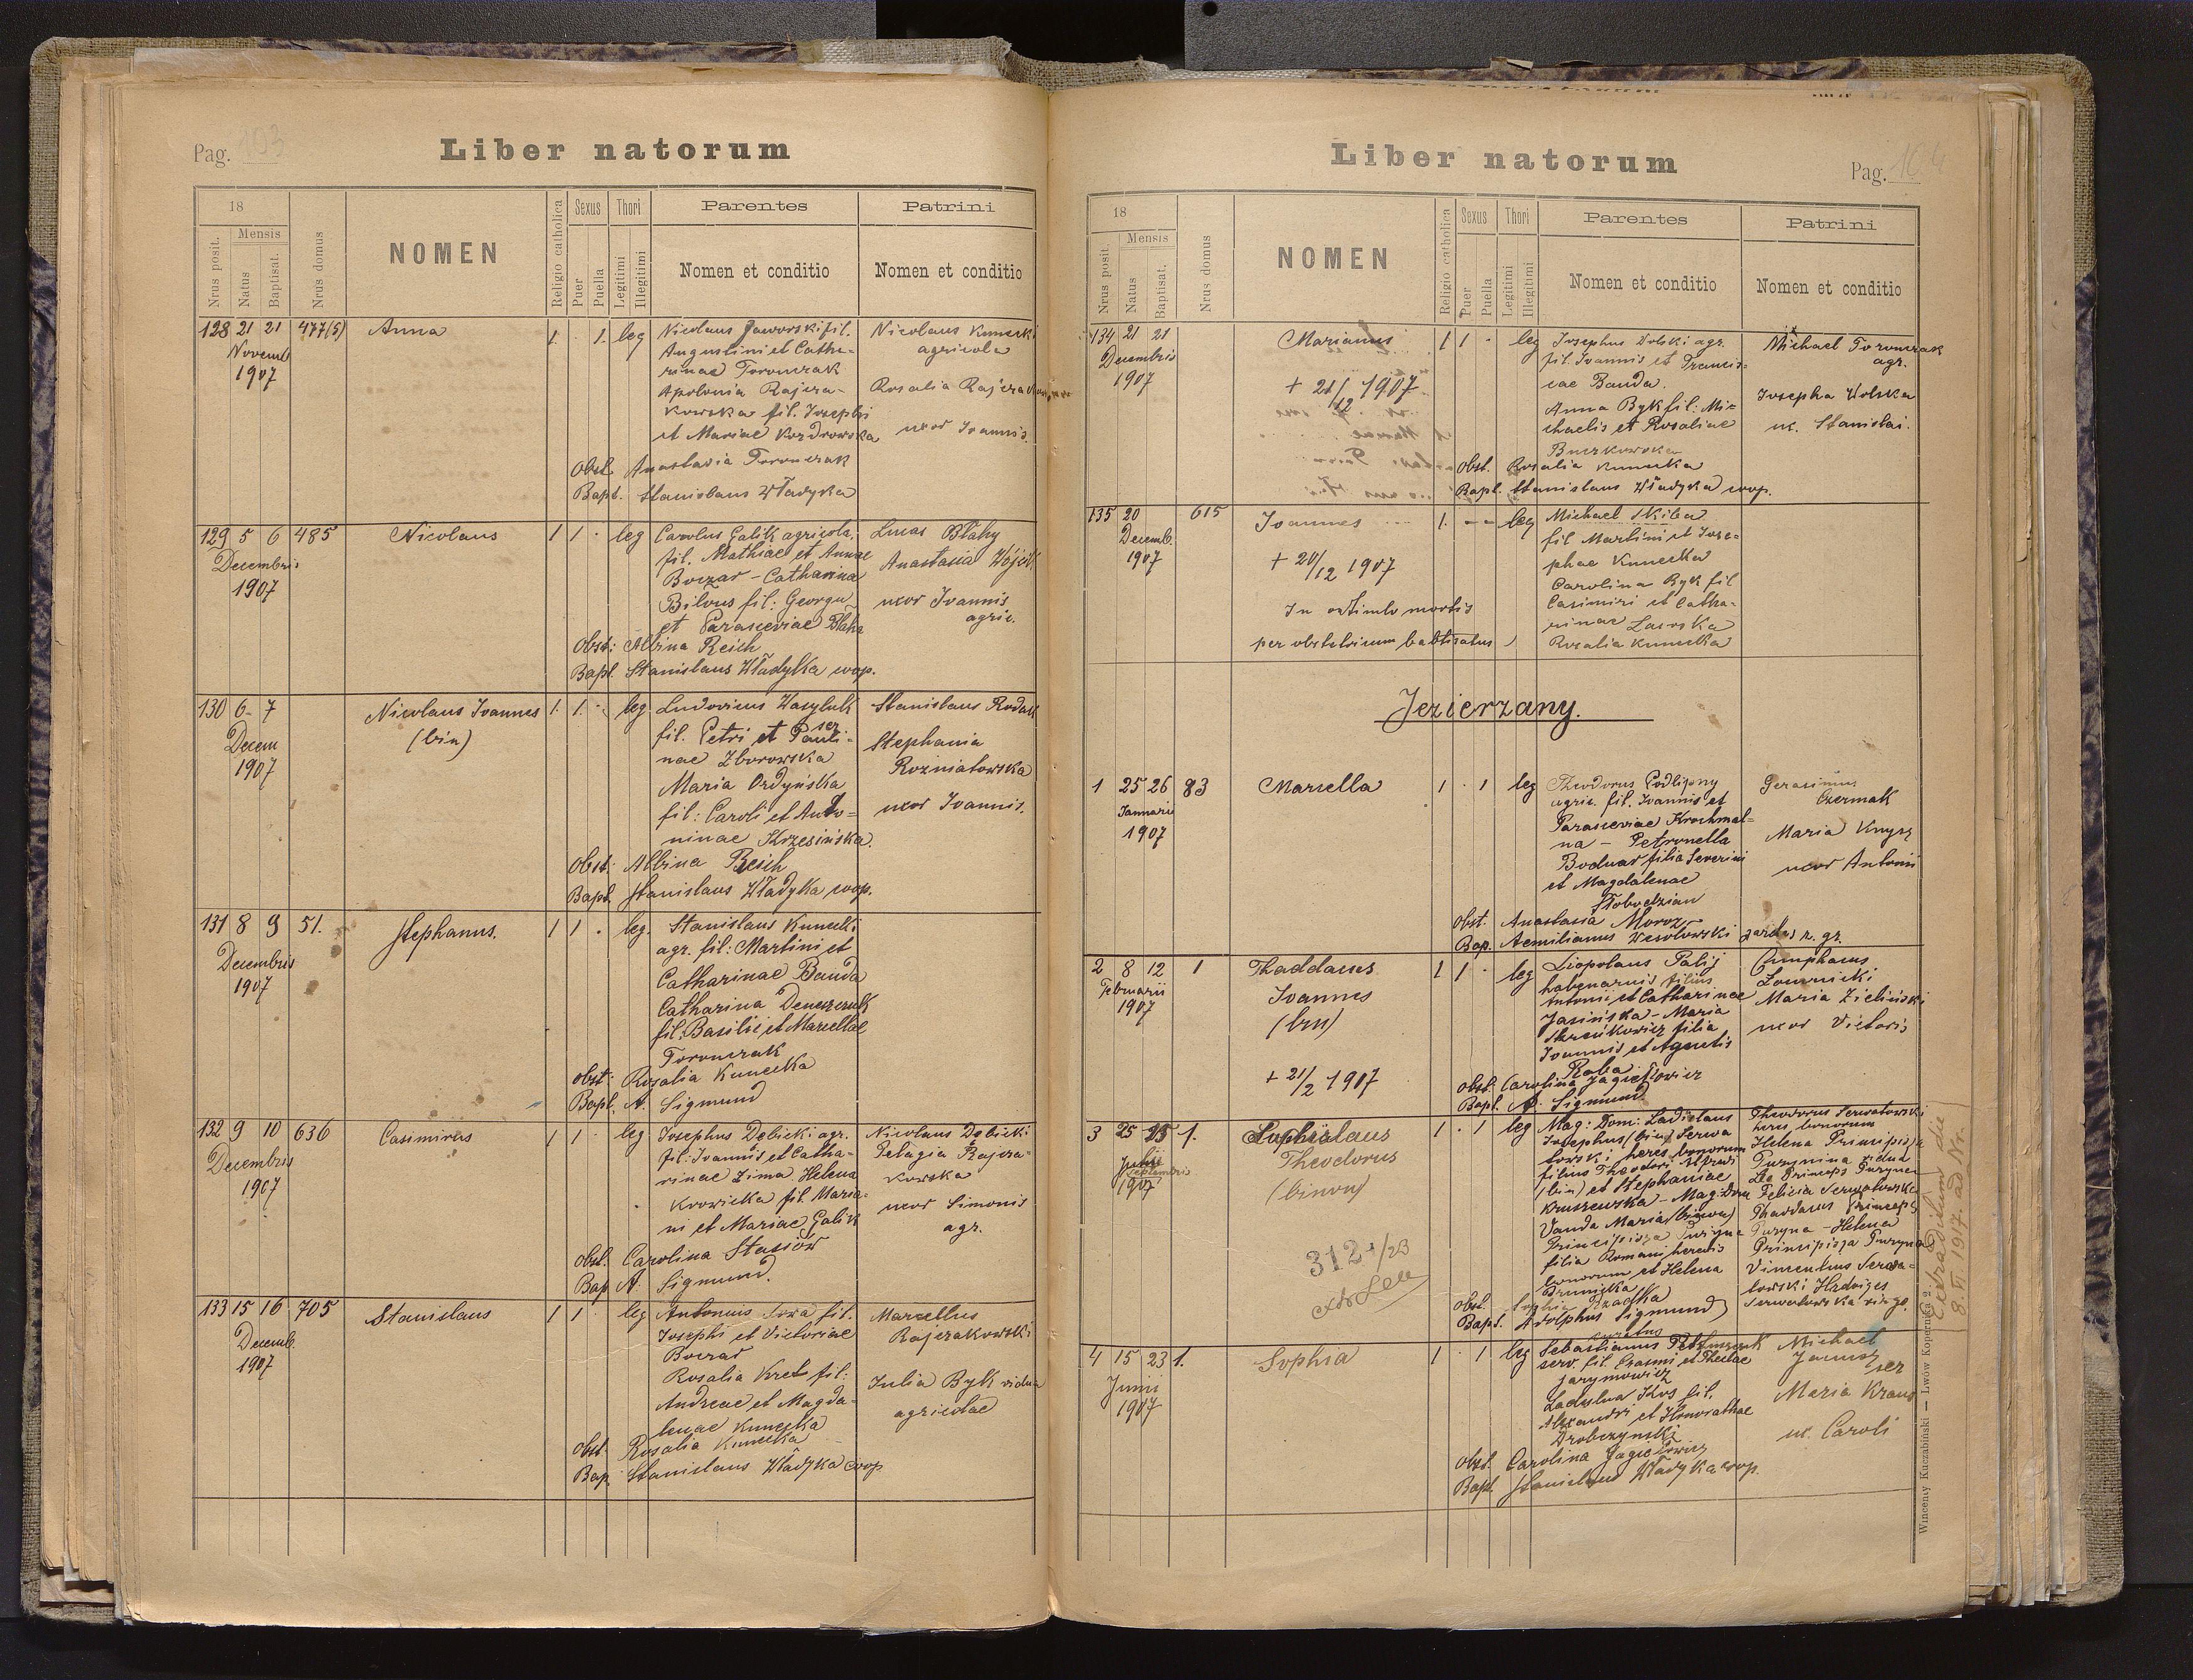 Pag. 103
Liber natorum
18
Nrus posit.
Mensis
Natus
Baptisat.
Nrus domus
NOMEN
Religio catholica
Sexus
Puer
Puella
Thori
Legitimi
Illegitimi
Parentes
Nomen et conditio
Patrini
Nomen et conditio
128 21 21 477(5) Anna 1. 1. leg
Novemb
1907
Nicolaus Jaworski fil.
Augustini et Catha-
rinae Toronczak
Apolonia Rajcza-
kowska fil. Josephi
et Mariae Kozdrowska
Nicolaus Kunecki
agricola
Rosalia
uxor Joannis.
Obst. Anastasia Toronczak
Bapt. Stanislaus Władyka
129 5 6 485 Nicolaus 1 1 leg
Decembris
1907
Carolus Galik agricola.
fil. Mathiae et Annae
Boczar - Catharina
Bilous fil: Georgii
et Parasceviae
Lucas Błahy
Anastasia Wójcik
uxor Joannis
agric.
Obst: Albina Reich
Bapt. Stanislaus Władyka coop.
130 6 7 Nicolaus Joannes 1. 1. leg.
(bin)
Decem
1907
Ludovicus Wasyluk
fil. Petri et Pauli-
nae Zborowska
Maria Ordyńska
fil: Caroli et Anto=
ninae Krzesińska.
Stanislaus Rodak
Stephania
Rozniatowska
uxor Joannis.
Obst. Albina Reich
Bapt. Stanislaus Władyka coop.
131 8 9 51. Stephanus. 1 1 leg.
Decembris
1907
Stanislaus Kunecki
agr. fil: Martini et
Catharinae Banda
Catharina
fil: Basilii et Marcellae
Toronczak
Obst: Rosalia Kunecka
Bapt. A. Sigmund
132 9 10 636 Casimirus 1 1 leg
Decembris
1907
Josephus Dębicki agr.
fil: Joannis et Catha-
rinae Zima. Helena
Krowicka fil. Maria-
ni et Mariae Galik
Nicolaus Dębicki
Pelagia Rajcza-
kowska
uxor Simonis
agr.
Obst. Carolina Stasiów
Bap A. Sigmund.
133 15 16 705 Stanislaus 1 1 leg
Decemb.
1907
Antonius Sowa fil.
Josephi et Victoriae
Boczar
Rosalia Kret fil:
Andreae et Magda-
lenae Kunecka
Marcellus
Rajczakowski
Julia Byk vidua
agricolae
Obst. Rosalia Kunecka
Bap. Stanislaus Władyka coop
Liber natorum
Pag. 104
18
Nrus posit.
Mensis
Natus
Baptisat.
Nrus domus
NOMEN
Religio catholica
Sexus
Puer
Puella
Thori
Legitimi
Illegitimi
Parentes
Nomen et conditio
Patrini
Nomen et conditio
134 21 21 Marianus 1 1 leg
Decembris
1907
+ 21/12 1907
Josephus Wolski agr.
fil. Joannis et Francis=
cae Banda.
Anna Byk fil: Mi=
chaelis et Rosaliae
Buczkowska
Michael Toronczak
agr.
Josepha Wolska
ux. Stanislai.
Obst. Rosalia Kunecka
Bapt. Stanislaus Władyka coop.
135 20 615 Joannes 1. leg
Decemb.
1907
+ 20/12 1907
In articulo mortis
per obstetricem babtisatus
Michael Skiba
fil Martini et Jose=
phae Kunecka
Carolina Byk fil
Casimiri et Catha-
rinae Lasoska
Rosalia Kunecka
Jezierzany.
1 25 26 83 Marcella 1 1 leg
Januarii
1907
Theodorus Podlipny
agric. fil. Joannis et
Parasceviae Krochmal=
na - Petronella
Bodnar filia Severini
et Magdalenae
Słobodzian
Gerasimus
Czermak
Maria Knysz
uxor Antonii
Obst. Anastasia Moroz
Bap. Aemilianus Wesołowski r. gr.
2 8 12 1 Thaddaeus 1 1 leg
Februarii
1907
Joannes
(bin)
+ 21/2 1907
Liopolaus Palij
filius
Antonii et Catharinae
Jasińska - Maria
filia
Joannis et Agnetis
Raba
Maria Zielińska
uxor Victoris
Obst. Carolina Jagiełłowicz
Bapt. A. Sigmund
3 25 25 1. 1. 1 leg
Septembris
1907
Theodorus
(binom)
3124/23
Mag: Dom: Ladislaus
Josephus (bin) Serwa
towski heres bonorum
filius Theodori Alfredi
(bin) et Stephaniae
Kruszewska - Mag: Dom
Vanda Maria (binom)
Principissa Puzyna
filia Romani heredis
bonorum et Helena
Brunicka
Theodorus Serwatowski
heres bonorum
Helena Principissa
Puzynina vidua
Leo Princeps Puzyna
Felicia Serwatowska
Thaddaeus Princeps
Puzyna - Helena
Principissa Puzyna
Vincentius Serwa-
towski Hedviges
Serwatowska virgo.
Obst. Sophia Rzadka
Bapt. Adolphus Sigmund
curatus
Extraditum die
8. VI. 1917. ad Nr.
4 15 23 1. Sophia 1 1 leg
Junii
1907
Sebastianus
serv. fil. Erasmi et Theclae
Jarymowicz
Ladyslva Kos fil.
Alexandri et Honorathae
Drobczynski
Michael
Maria Kraus
ux. Caroli
Obst. Carolina Jagiełłowicz
Bapt. Stanislaus Władyka coop.
Wincenty Kuczabiński — Lwów Kopernika 2.